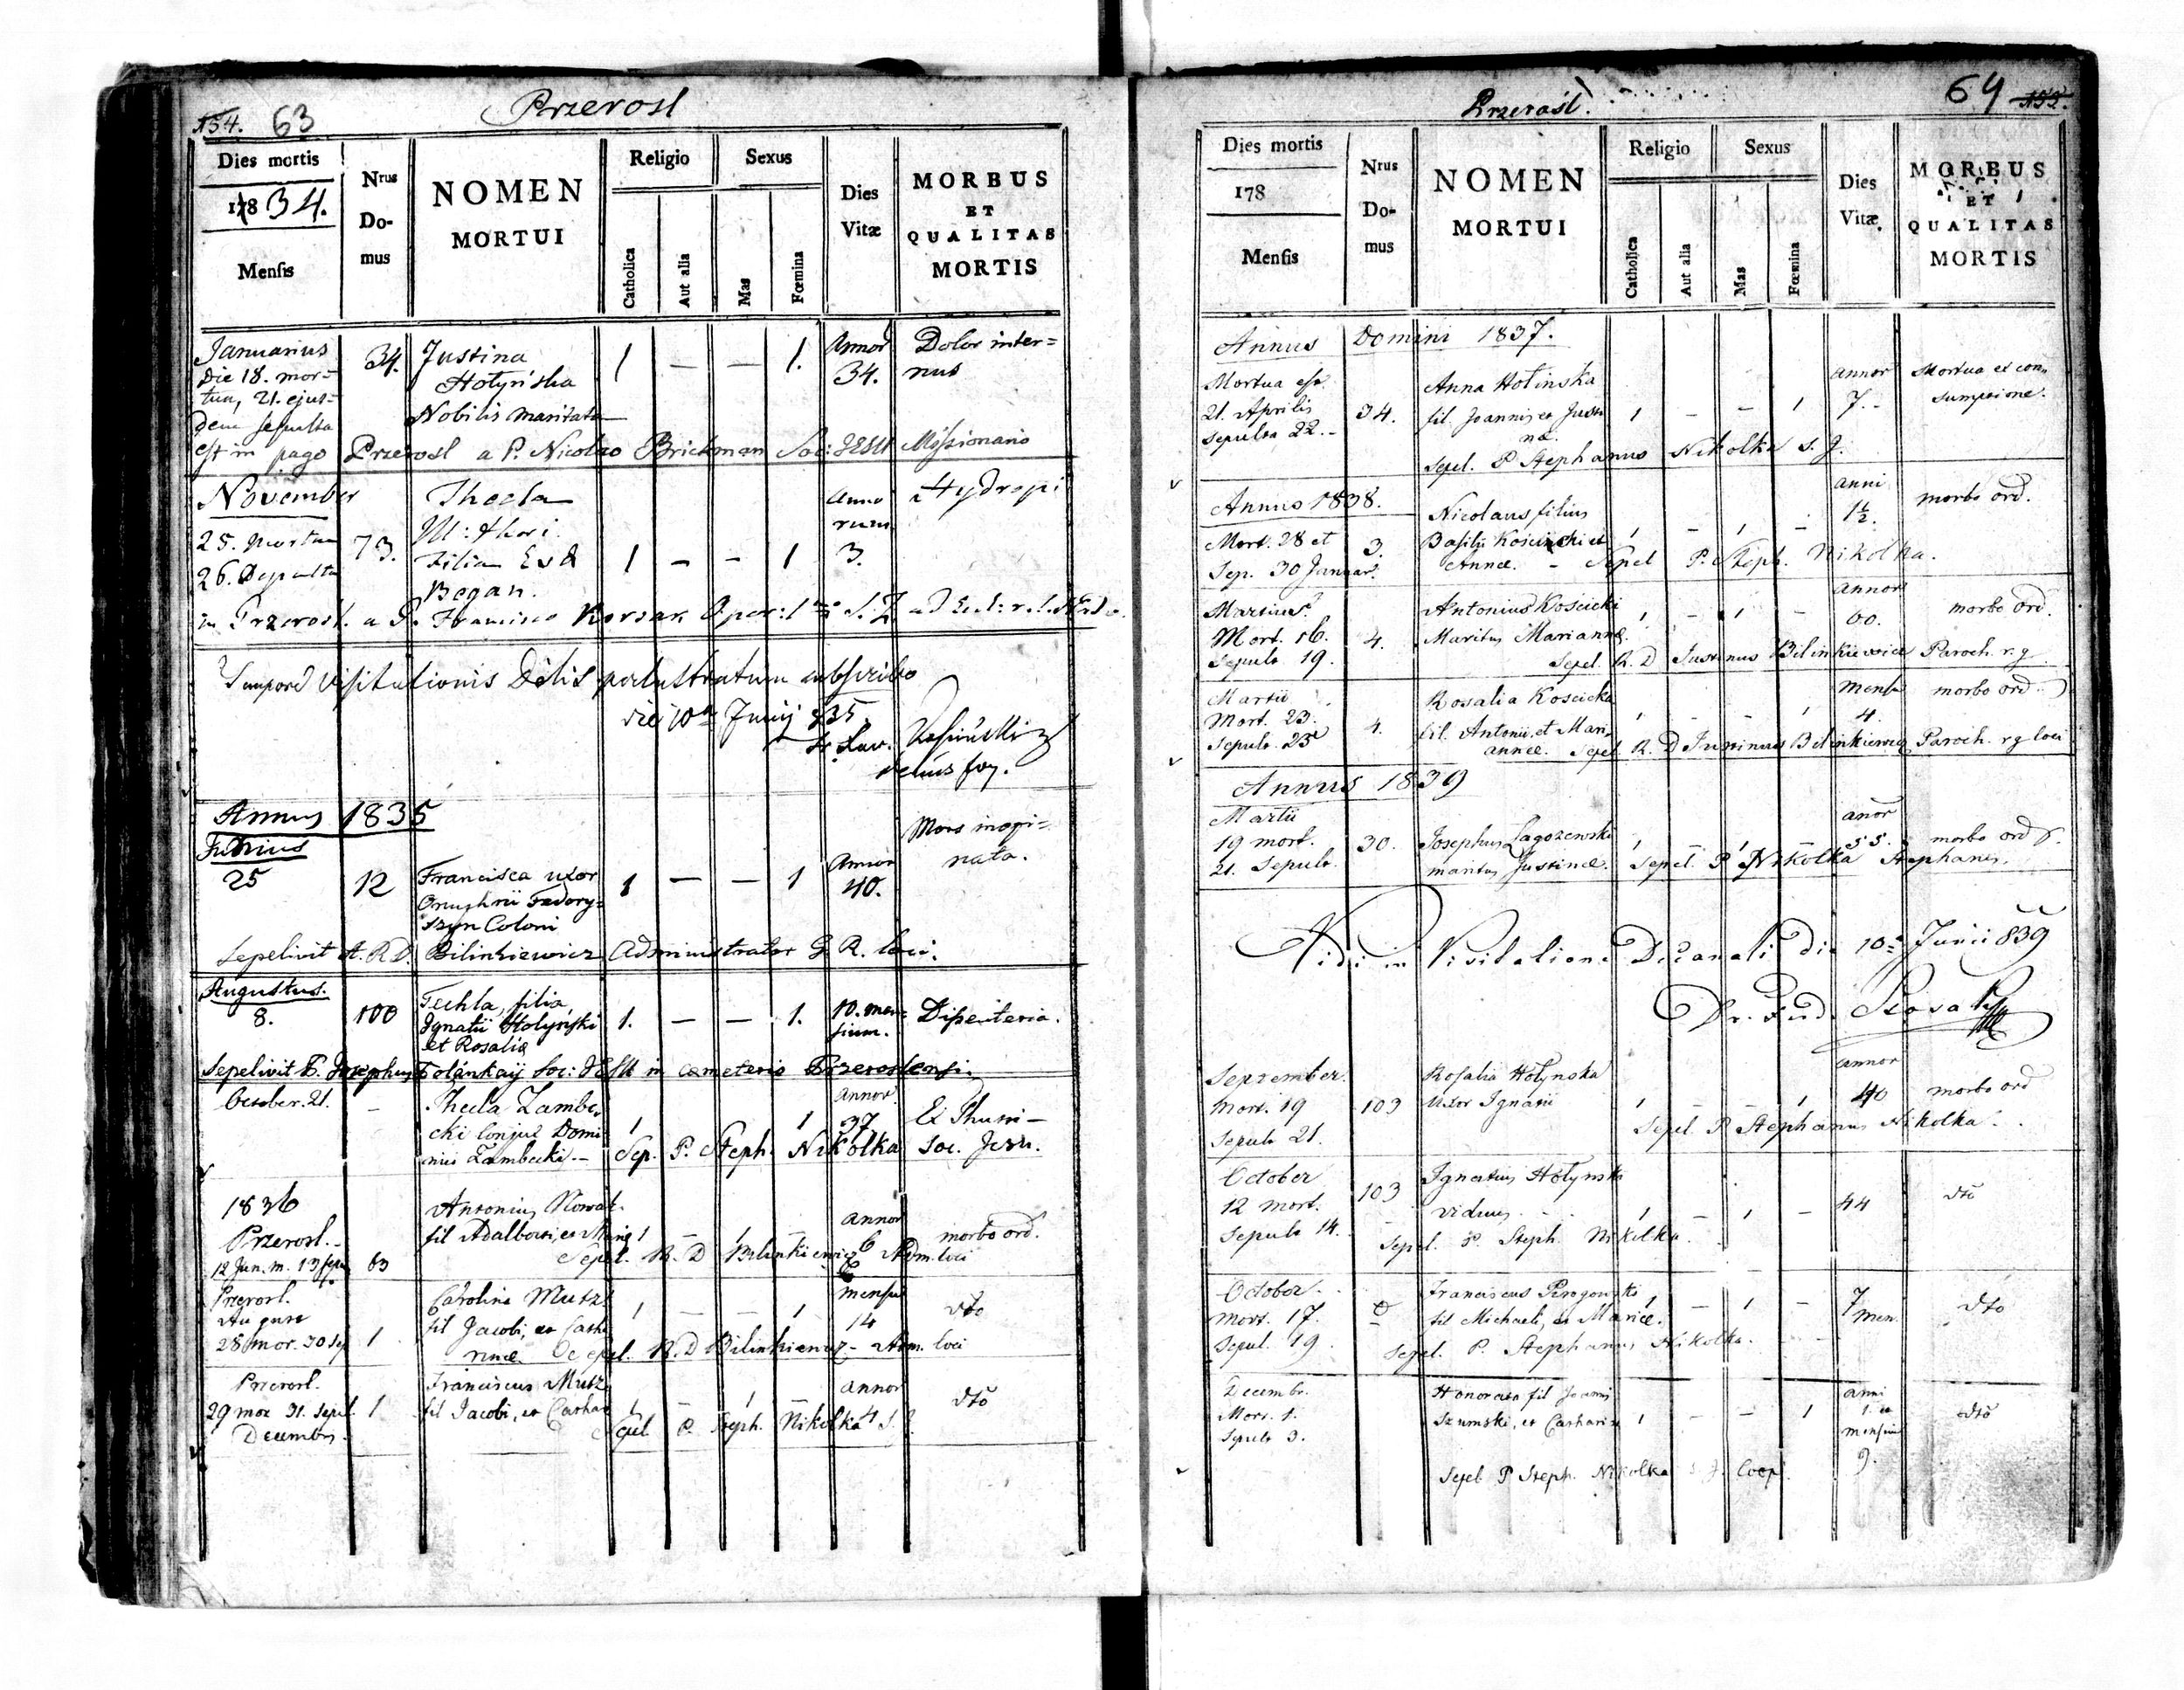 154. 63
Przerosl
Dies mortis
178 34.
Mensis
Nrus
Do-
mus
NOMEN
MORTUI
Religio
Catholica
Aut alia
Sexus
Mas
Fœmina
Dies
Vitæ
MORBUS
ET
QUALITAS
MORTIS
Januarius 34. Justina 1 — — 1. Annor Dolor inter=
Die 18. mor= Hołyńska 34. nus
tua, 21. ejus= Nobilis maritata
dem sepulta
est in pago Przerosl a P. Nicolao Brickman Soc: JESU Missionario
November Thecla Anno Hydropi
rum
25. mortua 73. Filia 1 — — 1 3.
26. Sepulta Began.
in Przerosl. a P. Francisco Korsak
Tempore Visitationis Dēlis perlustratum subscribo
die 10a Junij 835
Annus 1835
Junius Mors inopi=
25 12 Francisca uxor 1 — — 1 Annor nata.
Onuphrii Fedory= 40.
szyn Coloni
Sepelivit A. R. D. Bilinkiewicz Administrator G. R. loci.
Augustus.
8. 100 Techla, filia 1. — — 1. 10. men= Disenteria.
Ignatii Hołyński sium.
et Rosaliæ
Sepelivit P. Josephus Soc: JESU in cameterio Przeroslensi.
October. 21. — Thecla Zambe= 1 1 Annor. Ex Thusi—
cki conjux Domi 37
nici Zambecki.— Sep. P. Steph. Nikolka Soc. Jesu.
1836 Antonius Nowak
Przerosl. fil Adalberti, et 1 — 1 — annor morbo ord.
12 Jan. m. 13 sepu 63 Sepel. R. D Bilinkiewicz 6 Adm. loci
Przerosl. Carolina Mutz 1 — — 1 mensiu dto
August fil Jacobi, et Catha 14
28 mor. 30 Sep 1 rinæ. Sepel. R. D Bilinkiewicz — Adm. loci
Przerosl. Franciscus Mutz annor
29 mor 31. Sepul. 1 fil Jacobi, et Cathar 1 — 1 — 4 dtō
Decembris. Sepel P. Steph. Nikolka S. J.
64 152.
Przerośl.
Dies mortis
178
Mensis
Nrus
Do-
mus
NOMEN
MORTUI
Religio
Catholica
Aut alia
Sexus
Mas
Fœmina
Dies
Vitæ
MORBUS
ET
QUALITAS
MORTIS
Annus Domini 1837.
Mortua est Anna Hołinska annor Mortua ex con=
21. Aprilis 34. fil Joannis et Justi 1 — — 1 7.— sumptione.
Sepulta 22.— næ.
Sepel. P Stephanus Nikolka S. J.
Annus 1838. Nicolaus filius anni morbo ord.
1½.
Mort. 28 et 3. Basilii Kościcki et 1 — 1 —
Sep. 30 Januar. Annæ. — Sepel P. Steph. Nikolka.
Martius Antonius Kościcki 1 — 1 — annor morbo ord.
Mort. 16. 4. Maritus Mariannæ. 60.
Sepult 19. Sepel. R. D Justinus Bilinkiewicz Paroch. r. g.
Martii Rosalia Koscicka mens morbo ord.
Mort. 23. 4. fil. Antonii, et Mari 1 — — 1 4.
Sepult. 25 annæ. Sepel R. D Justinus Bilinkiewicz Paroch. r g loci
Annus 1839
Martii
19 mort. 30. Josephus Łagozewski 1 — 1 — anor 55. morbo ord.
21. Sepult. maritus Justinæ. Sepel. P Nikolka Stephanus.
Vidi in Visitatione Decanali die 10a Junii 839
September. Rosalia Hołynska annor
Mort. 19 103 Uxor Ignatii 1 — — 1 40 morbo ord
Sepult 21. Sepel P Stephanus Nikolka.
October 103 Ignatius Hołynski
12 mort. viduus. 1 — 1 — 44 dtō
Sepult 14. Sepel. P. Steph. Nikolka.
October. Franciscus Pirogowski
Mort. 17. fil Michaeli, et Mariæ. 1 — 1 — 7 men. dto
Sepul. 19. Sepel. P. Stephanus Nikolka.
Decembr. Honorata fil Joanni anni
Mort. 1. Szumski, et Catharinæ 1 — — 1 1. et dtō
Sepult 3. mensium
9.
Sepel P Steph. Nikolka S. J. Coop.